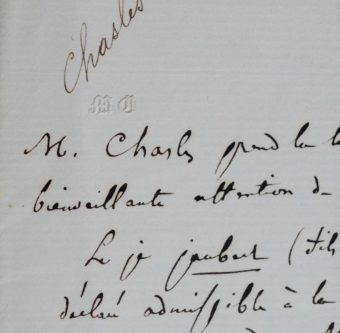 Chasles
M. Chasles prend la
bienveillante attention de
Le je joubert (fils
déclaré admissible à la